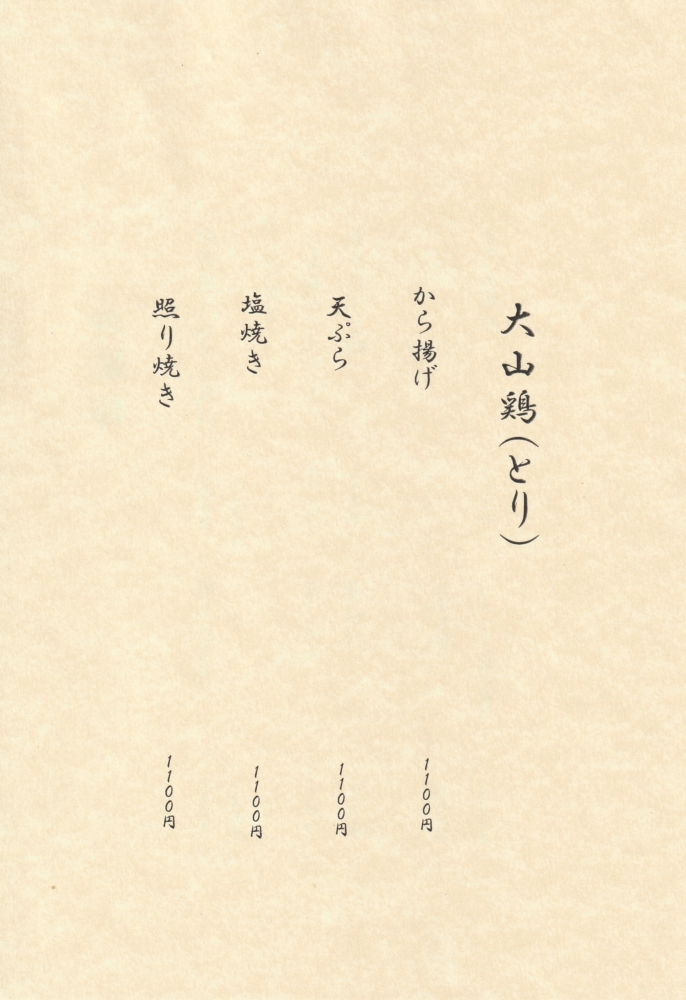 大山鶏(とり)
から揚げ 1100円
天ぷら 1100円
塩焼き 1100円
照り焼き 1100円